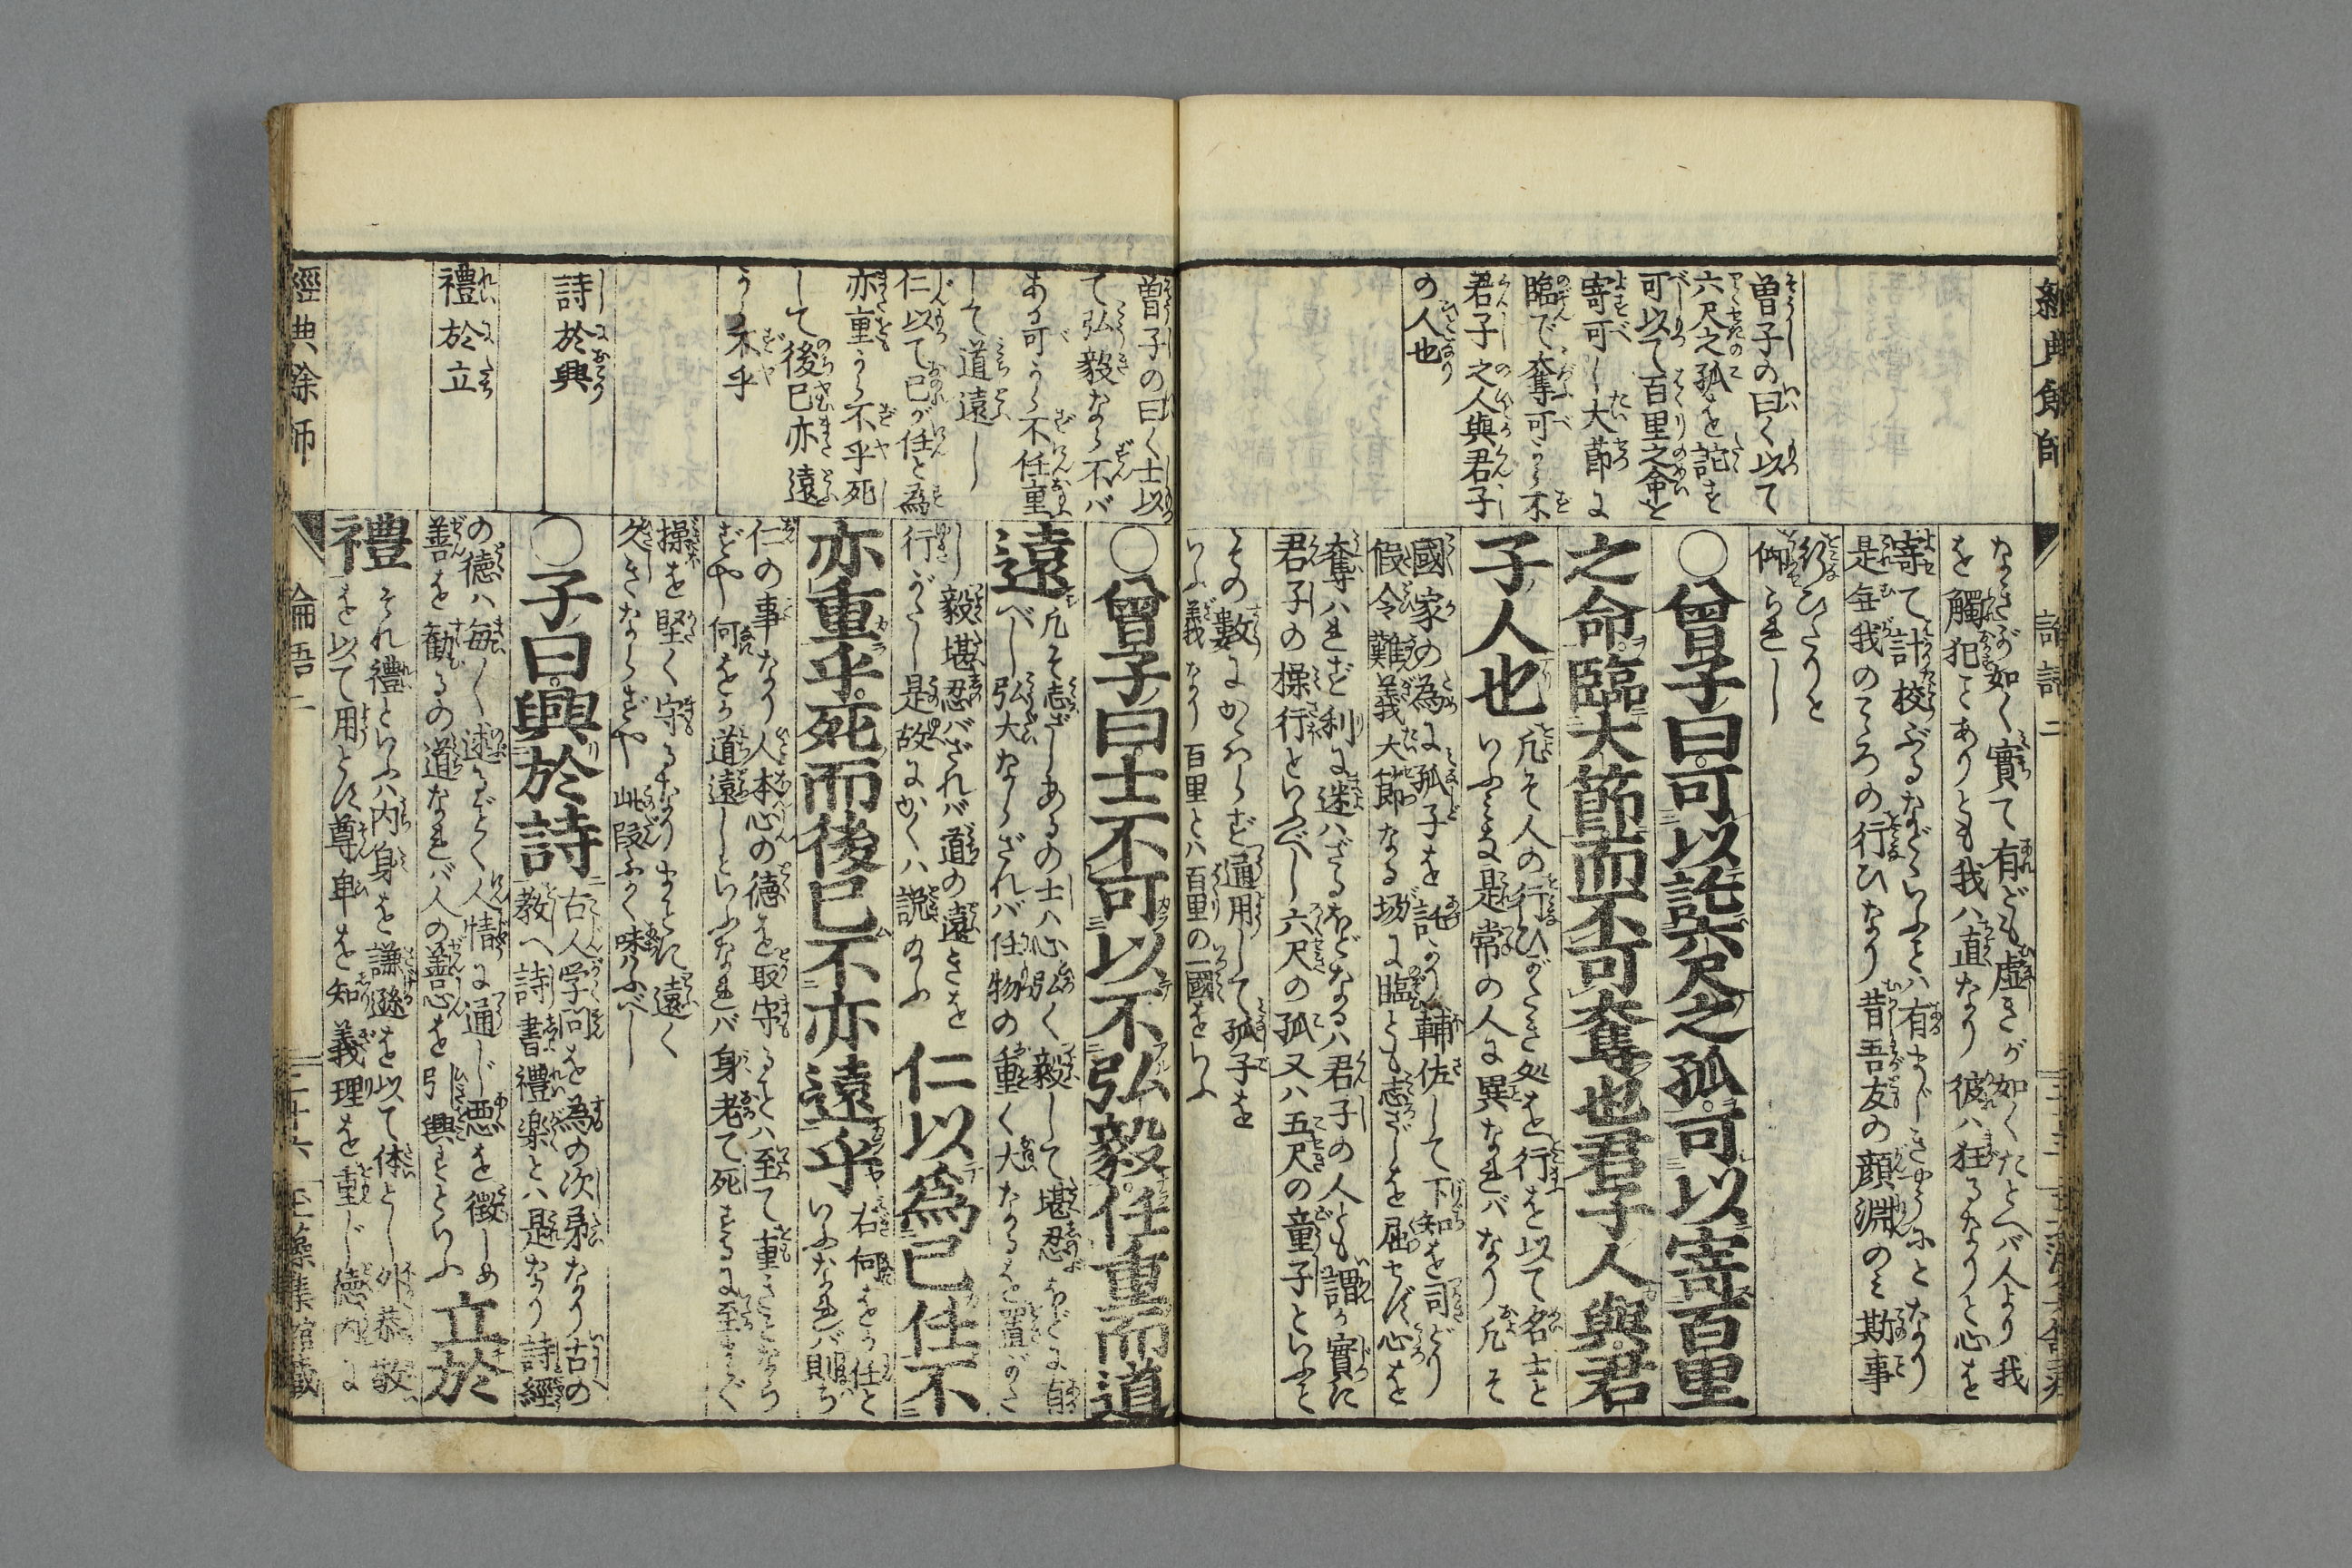 曽子の曰く以て
六尺之孤を託す
可以て百里之命を
寄可し大節に
臨で奪可から不
君子之人與君子
の人也
なきが如く實て有ども虚きが如くたとへバ人より我
を觸犯ことありとも我ハ直なり彼ハ狂るなりと心を
寄て計校ぶるなどいふとハ有まじきやうにとなり
是毎我のころの行ひなり昔吾友の顔淵のミ斯事
行ひたりと
仰られし
〇曾子曰可以託六尺之孤可以寄百里
之命臨大節而不可奪也君子人與君
子人也
凡そ人の行ひがたき処を行を以て名士と
いふとも是常の人に異なれバなり凡そ
國家の為に孤子を託かり輔佐して下知を司どり
假令難義大節なる場に臨とも志ざしを屈せず心を
奪ハれず利に迷ハざるほどなるハ君子の人とも謂か實に
君子の操行といふべし六尺の孤又ハ五尺の童子といふと
その數にかゝハらず通用して孤子を
いふ義なり百里とハ百里の一國をいふ
曽子の曰く士以
て弘毅なら不バ
ある可から不任重
して道遠し
仁以て已が任と為
亦重から不乎死
して後已亦遠
から不乎
詩於興
禮於立
〇曾子曰士不可以不弘毅任重而道
遠
凡そ志ざしあるの士ハ心弘く毅して堪忍ほどに有
べし弘大ならざれバ任物の重く大なるを置がた
し毅堪忍バざれバ道の遠きを
行がたし是故にかくハ説のふ
仁以爲已任不
亦重乎死而後已不亦遠乎
右何をか任と
いふなれバ則ち
仁の事なり人本心の徳を取守るとハ至て重きことなら
ずや何をか道遠しといふなれバ身老て死するに至まで
操を堅く守るなりまことに遠く
久きならずや此段ふかく味ハふべし
〇子曰興於詩
右人学問を為の次第なり古の
教へ詩書禮楽とハ是なり詩經
の徳ハ毎〻述るごとく人情に通じ悪を徴しめ
善を勧るの道なれバ人の善心を引興すといふ
立於
禮
それ禮といふハ内身を謙遜を以て体とし外恭敬
を以て用とす尊卑を知義理を重じ徳内に
經典餘師
論語二
二十六